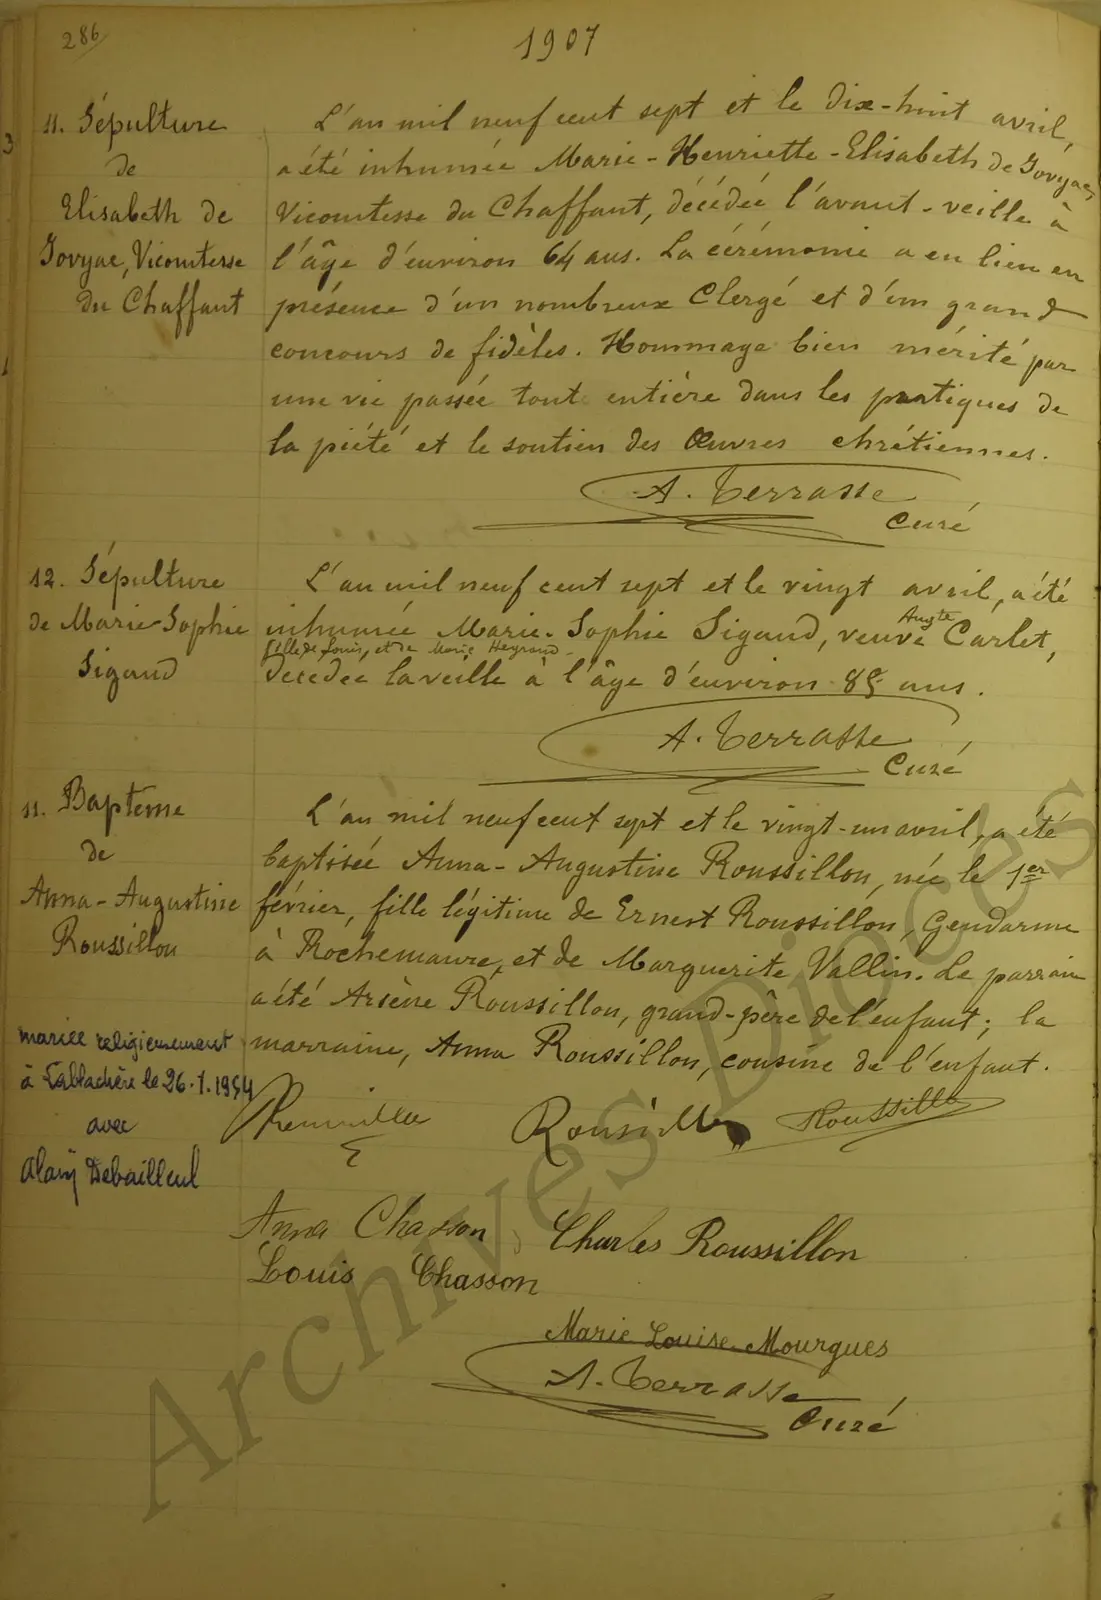 286
1907
11. Sépulture
de
Elisabeth de
Jovyac, Vicomtesse
du Chaffaut
L'an mil neuf cent sept et le dix-huit avril,
a été inhumée Marie-Henriette-Elisabeth de Jovyac,
Vicomtesse du Chaffaut, décédée l'avant-veille à
l'âge d'environ 64 ans. La cérémonie a eu lieu en
présence d'un nombreux Clergé et d'un grand
concours de fidèles. Hommage bien mérité par
une vie passée tout entière dans les pratiques de
la piété et le soutien des Œuvres chrétiennes.
A. Terrasse
Curé
12. Sépulture
de Marie-Sophie
Sigaud
L'an mil neuf cent sept et le vingt avril, a été
Augte
inhumée Marie-Sophie Sigaud, veuve Carlet,
fille de Louis, et de Marie
décédée la veille à l'âge d'environ 85 ans.
A. Terrasse
Curé
11. Baptême
de
Anna-Augustine
Roussillon
L'an mil neuf cent sept et le vingt-un avril, a été
baptisée Anna-Augustine Roussillon, née le 1er
février, fille légitime de Ernest Roussillon, Gendarme
à Rochemaure, et de Marguerite Vallin. Le parrain
a été Arsène Roussillon, grand-père de l'enfant; la
marraine, Anna Roussillon, cousine de l'enfant.
mariée religieusement
à Lablachère le 26.1.1954
avec
Alain Debailleul
Roussillon
Roussillon
Anna Chasson
Charles Roussillon
Louis Chasson
Marie Louise Mourgues
A. Terrasse
Curé
Archives Diocés